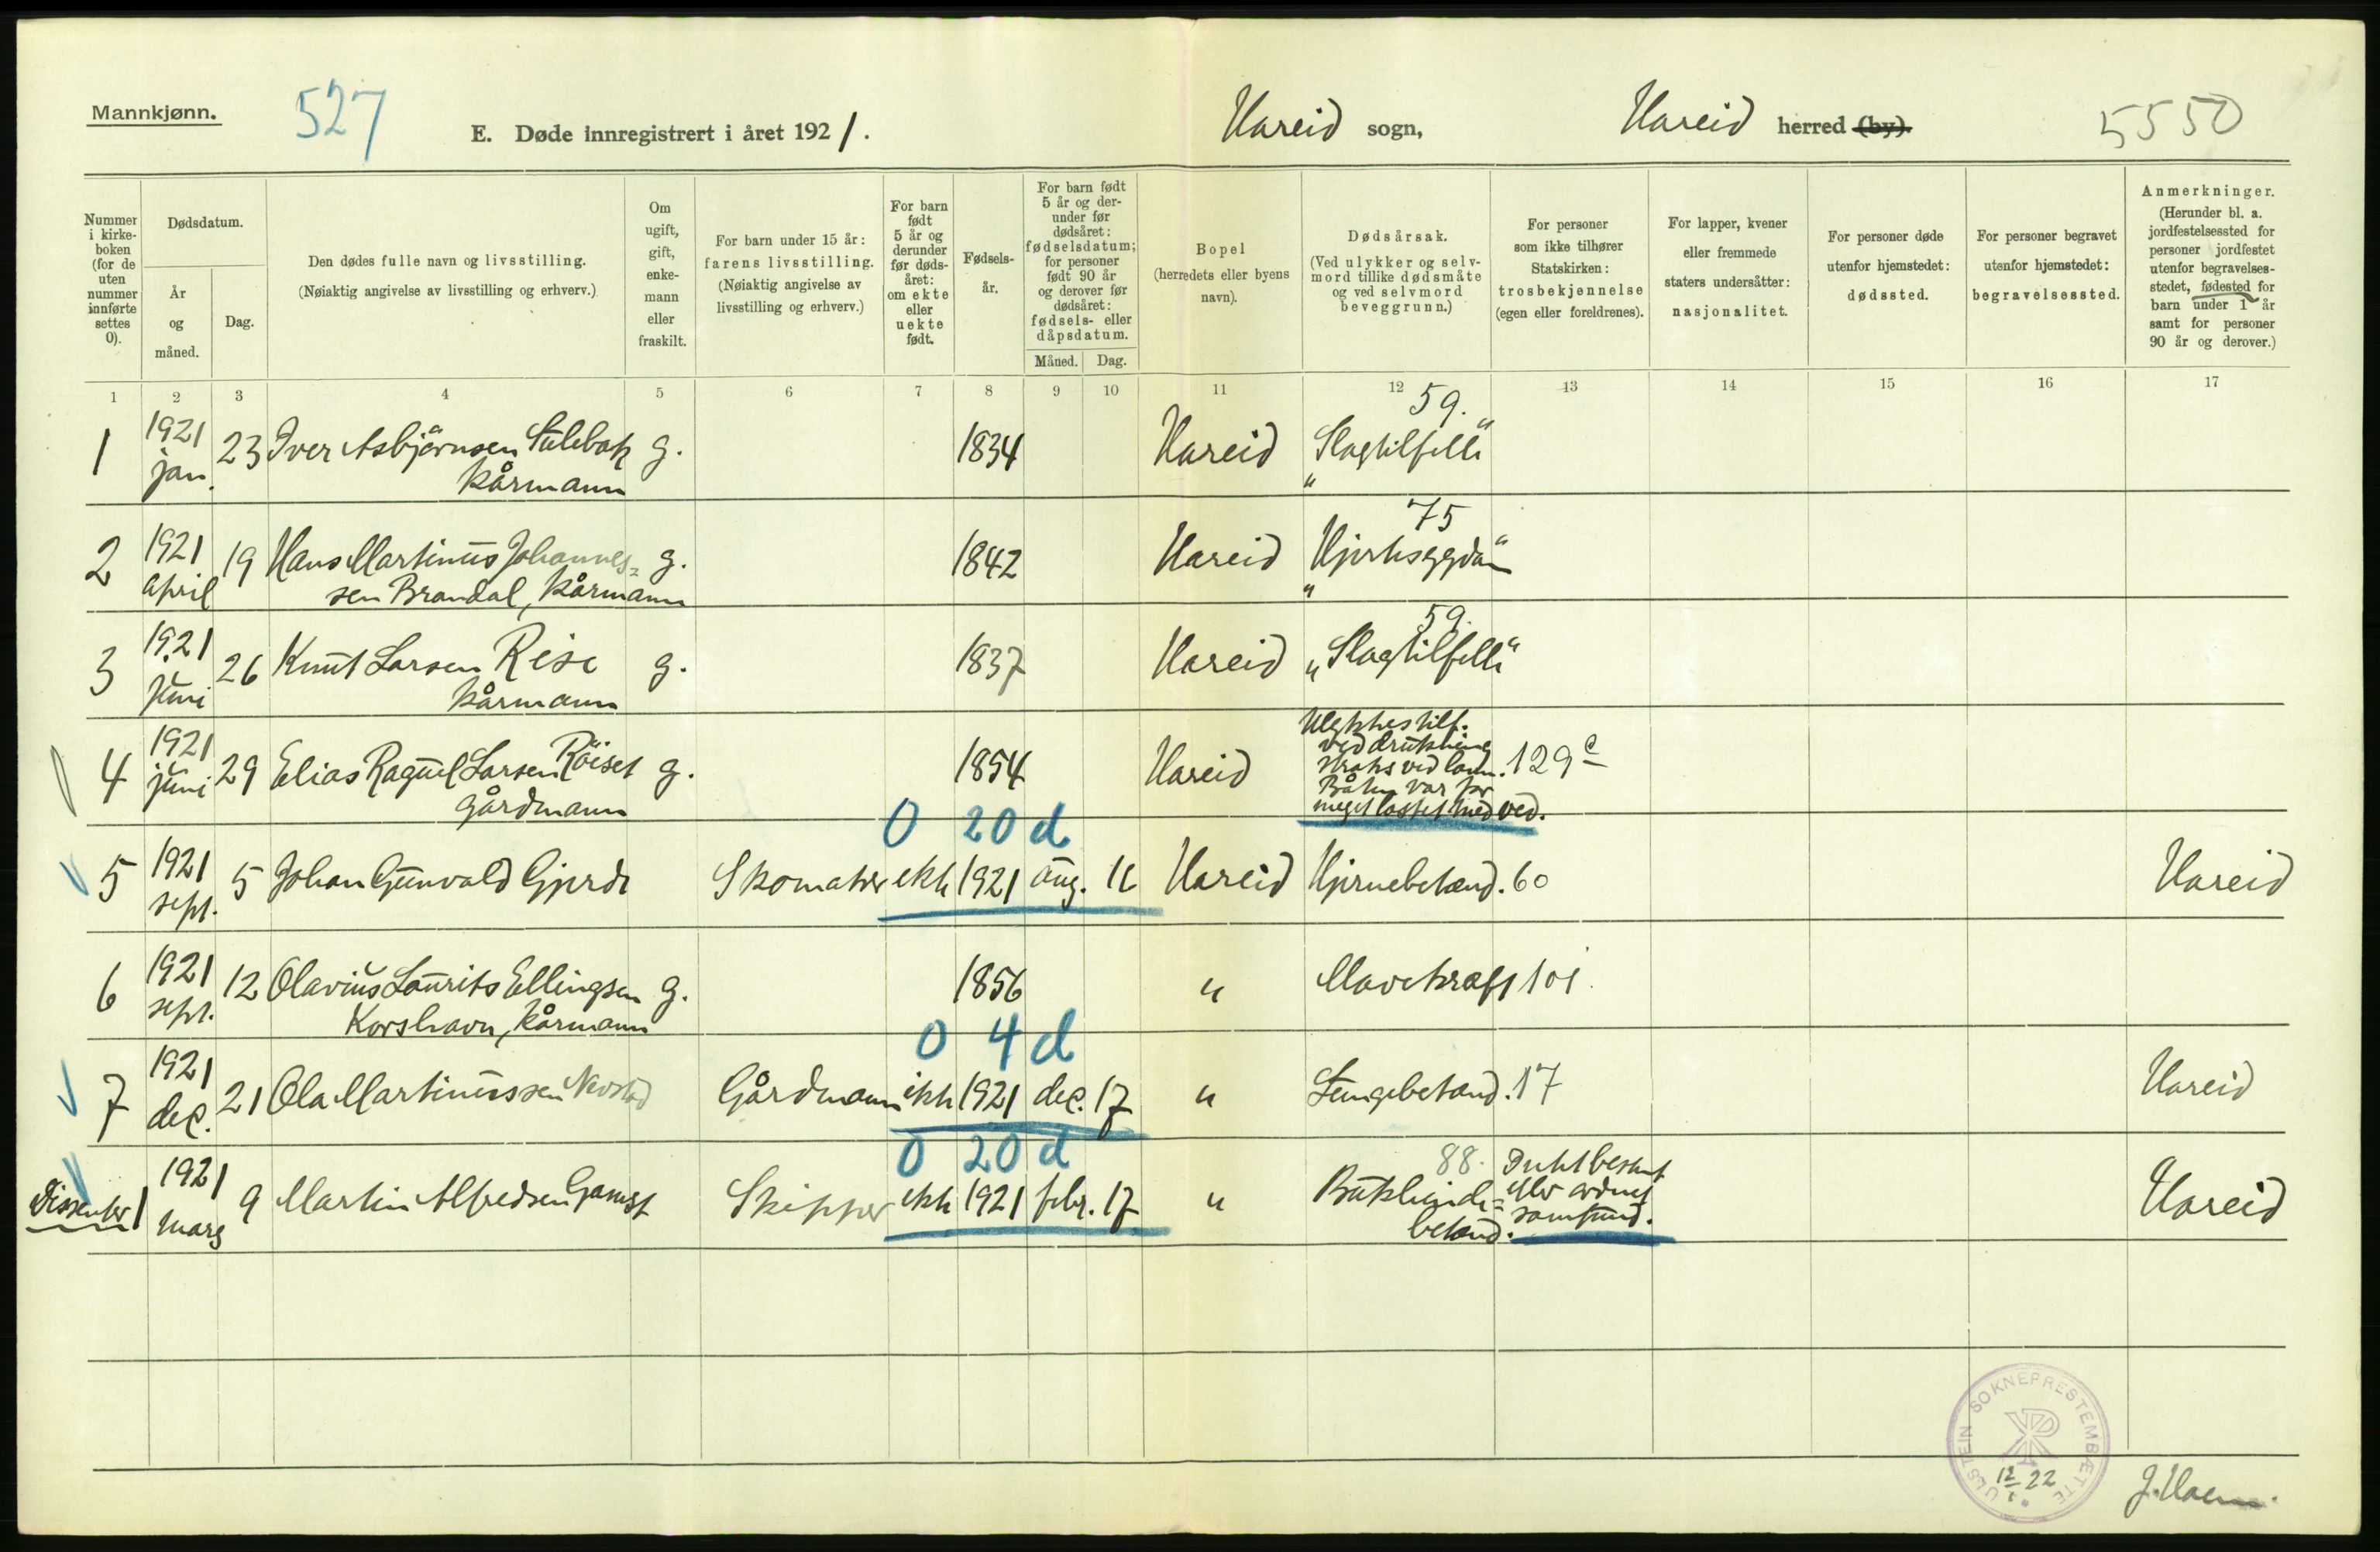 Mannkjønn.
527
E. Døde innregistrert i året 1921.
Hareid sogn,
Hareid herred (by).
5550
Nummer i kirke-boken (for de uten nummer innførte settes 0).
Dødsdatum.
År og måned.
Dag.
Den dødes fulle navn og livsstilling.
(Nøiaktig angivelse av livsstilling og erhverv.)
Om ugift, gift, enke-mann eller fraskilt.
For barn under 15 år: farens livsstilling.
(Nøiaktig angivelse av livsstilling og erhverv.)
For barn født 5 år og derunder før døds-året: om ekte eller uekte født.
Fødsels-år.
For barn født 5 år og der-under før dødsåret: fødselsdatum; for personer født 90 år og derover før dødsåret: fødsels- eller dåpsdatum.
Måned.
Dag.
Bopel
(herredets eller byens navn).
Dødsårsak.
(Ved ulykker og selv-mord tillike dødsmåte og ved selvmord beveggrunn.)
For personer som ikke tilhører Statskirken: trosbekjennelse (egen eller foreldrenes).
For lapper, kvener eller fremmede staters undersåtter: nasjonalitet.
For personer døde utenfor hjemstedet: dødssted.
For personer begravet utenfor hjemstedet: begravelsessted.
Anmerkninger.
(Herunder bl. a. jordfestelsessted for personer jordfestet utenfor begravelses-stedet, fødested for barn under 1 år samt for personer 90 år og derover.)
1 2 3 4 5 6 7 8 9 10 11 12 13 14 15 16 17
59.
1 1921 jan. 23 Iver Asbjörnsen g. 1834 Hareid "Slagtilfelle"
Kårmann
75
2 1921 april 19 Hans Martinus Johannes= g. 1842 Hareid
sen Brandal, Kårmann
59.
3 1921 juni 26 Knut Larsen Rise g. 1837 Hareid "Slagtilfelle"
Kårmann
4 1921 juni 29 Elias Raguel Larsen Röiset g. 1854 Hareid Ulykkestilf. ved drukning straks ved land. Båten var for meget lasset med ved. 129c
Gårdmann
0 20 d
5 1921 sept. 5 Johan Gunvald Gjerde Skomaker ekte 1921 aug. 16 Hareid Hjernebetænd. 60 Hareid
6 1921 sept. 12 Olavius Laurits Ellingsen g. 1856 " Mavekræft 101.
Korshavn, Kårmann
0 4 d
7 1921 dec. 21 Ola Martinussen Gårdmann ekte 1921 dec. 17 " Lungebetænd. 17 Hareid
0 20 d
88.
Dissenter 1 1921 mars 9 Martin Alfredsen Skipper ekte 1921 febr. 17 " Bukhinde= betænd. samfund. Hareid
ULSTEIN SOKNEPRESTEMBÆTTE
12/1 22